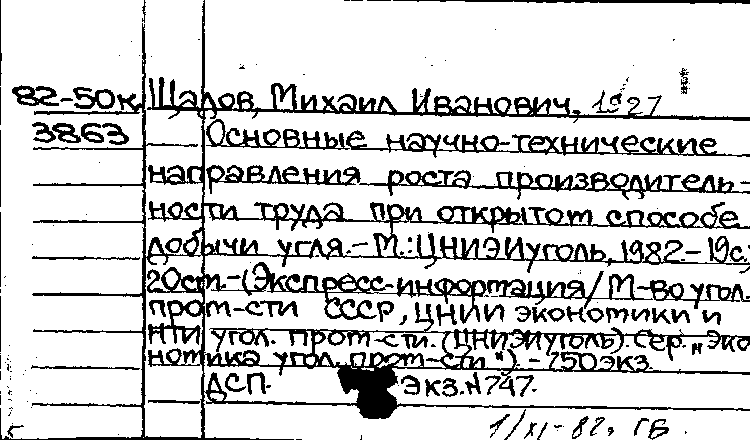 82-50к. Щадов, Михаил Иванович, 1927
3863 Основные научно-технические
направления роста производитель-
ности труда при открытом способе
добычи угля.-М.:ЦНИЭИуголь, 1982.-19с.;
20см.-(Экспресс-информация/М-во угол.
пром-сти СССР, ЦНИИ экономики и
НТИ угол. пром-сти. (ЦНИЭИуголь). Сер. „Эко
номика угол. пром-сти"). - 750экз.
ДСП. Экз.N747.
1/XI-82. ГБ.